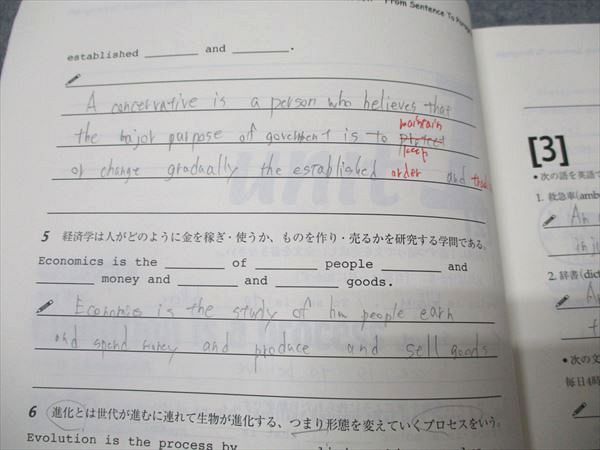 From Sentence To
established ______ and ______.
A concervative is a person who believes that
maintain
the major purpose of goverment is to protect
keep
or change gradually the established order and
5 経済学は人がどのように金を稼ぎ・使うか、ものを作り・売るかを研究する学問である。
Economics is the ______ of ______ people ______ and
______ money and ______ and ______ goods.
Economics is the study of how people earn
and spend money and produce and sell goods
6 進化とは世代が進むに連れて生物が進化する、つまり形態を変えていくプロセスをいう。
Evolution is the process by
[3]
• 次の語を英語で
1. 救急車(amb
An
inj
2. 辞書(dict
A
• 次の文
毎日4時